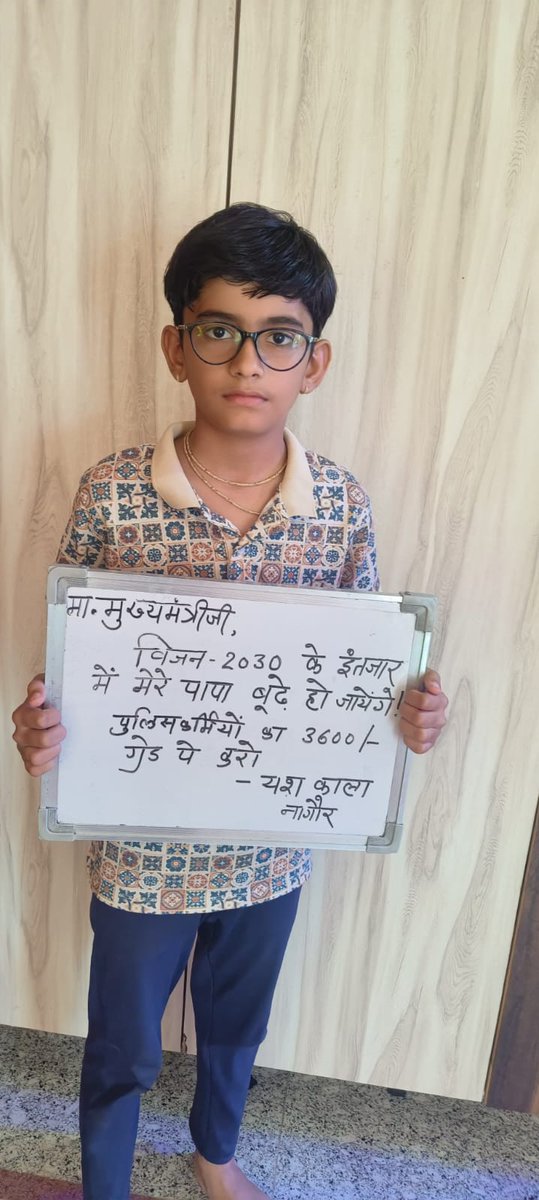 मा. मुख्यमंत्रीजी,
विजन-2030 के इंतजार
में मेरे पापा बूढ़े हो जायेंगे!
पुलिसकर्मियों का 3600/-
ग्रेड पे करो
- यश काला
नागौर